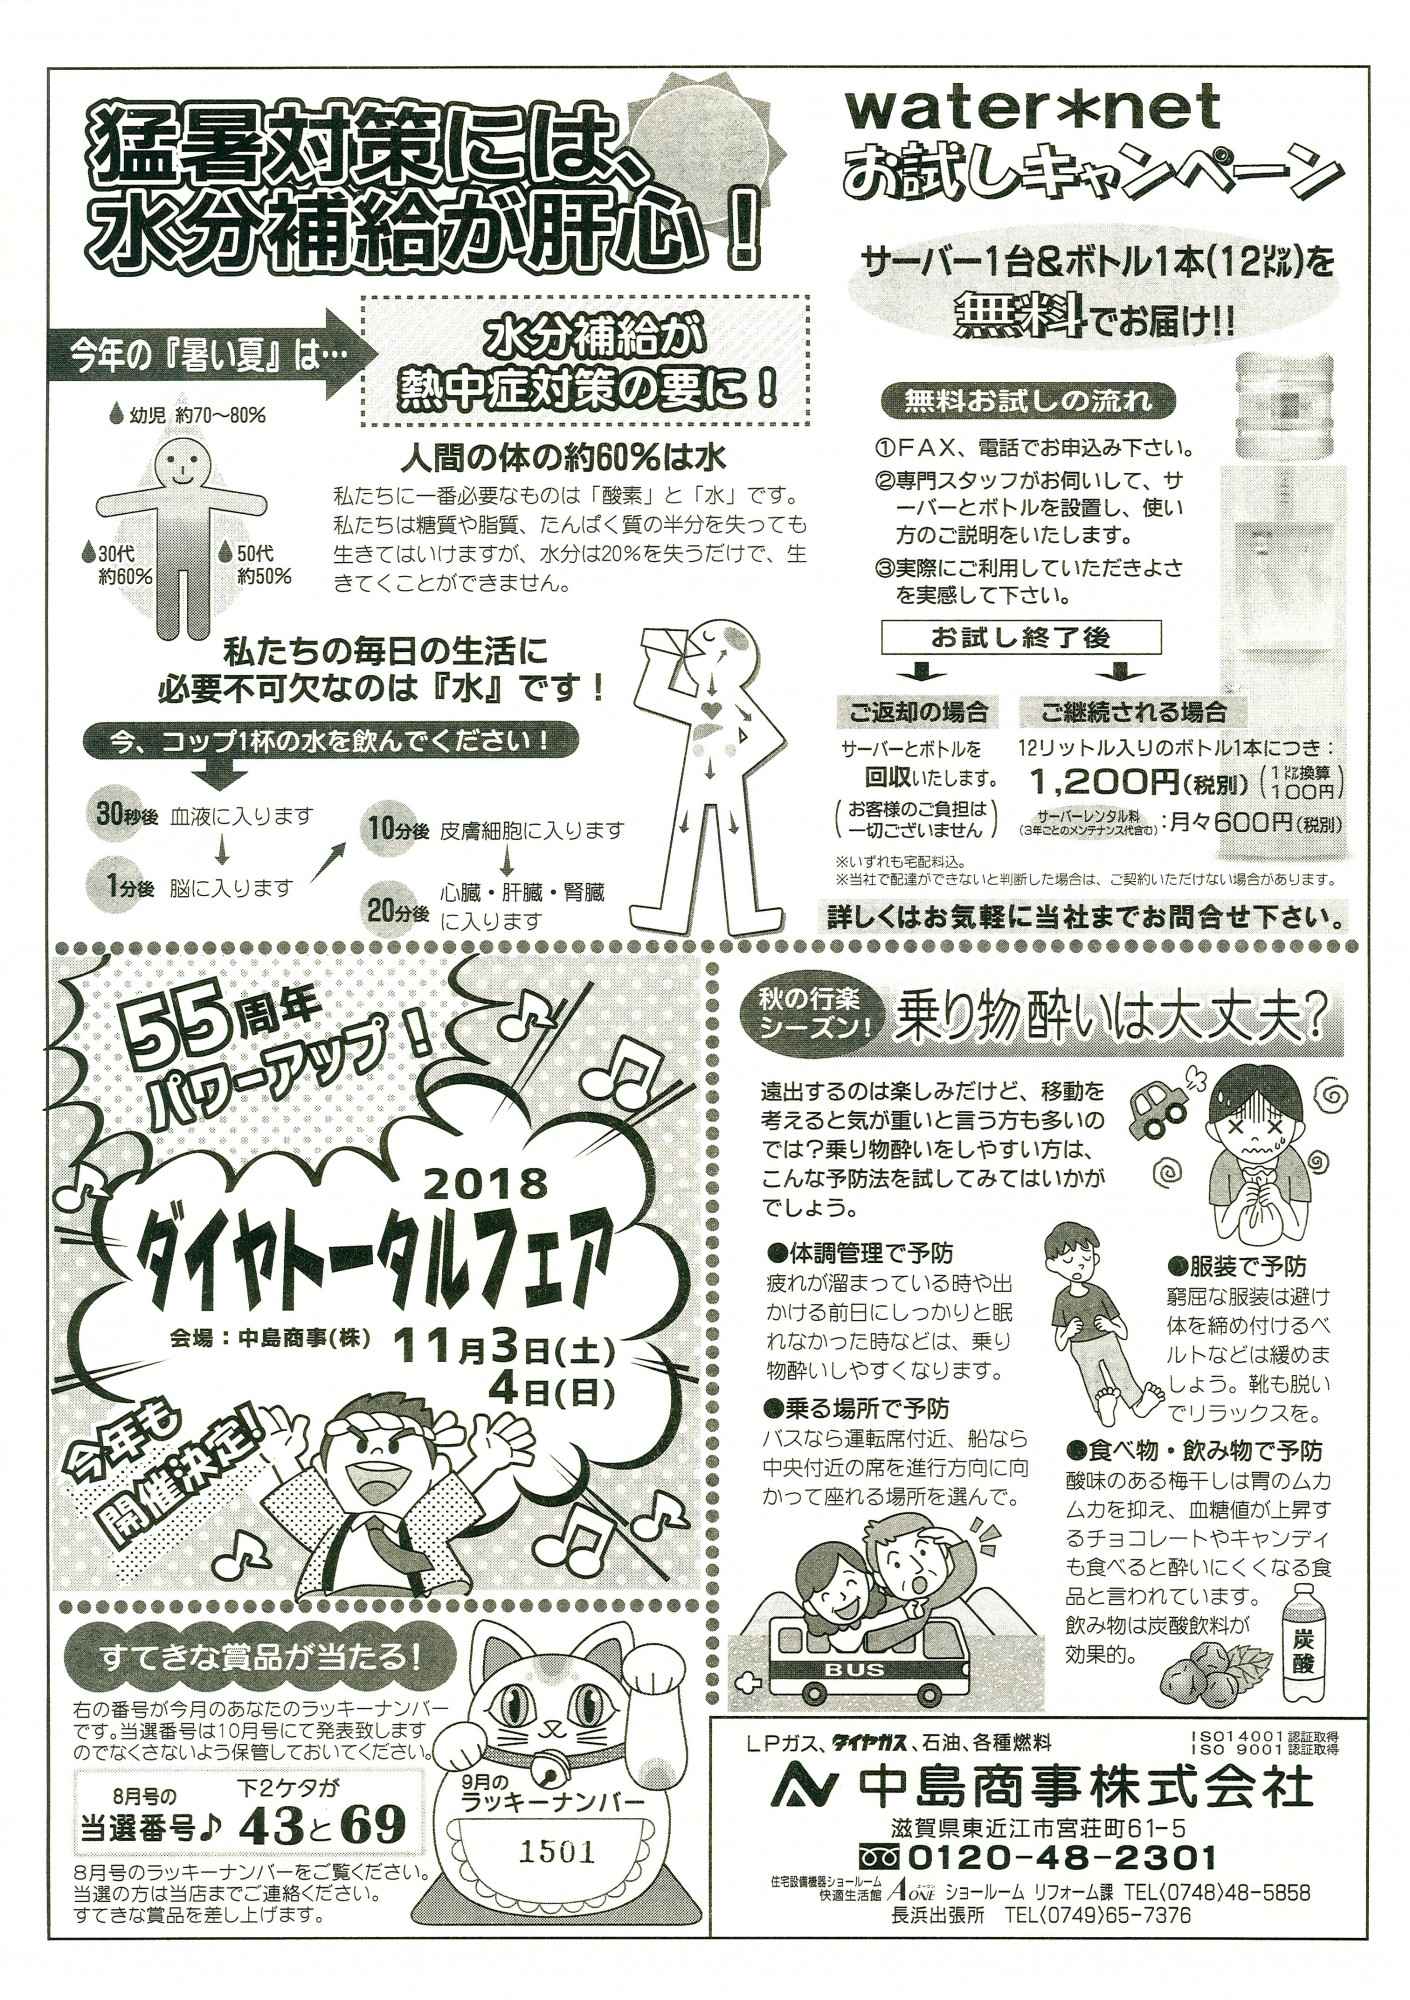 猛暑対策には、
水分補給が肝心！
今年の『暑い夏』は…
水分補給が
熱中症対策の要に！
幼児 約70～80%
30代
約60%
50代
約50%
人間の体の約60％は水
私たちに一番必要なものは「酸素」と「水」です。
私たちは糖質や脂質、たんぱく質の半分を失っても
生きてはいけますが、水分は20%を失うだけで、生
きてくことができません。
私たちの毎日の生活に
必要不可欠なのは『水』です！
今、コップ1杯の水を飲んでください！
30秒後 血液に入ります
1分後 脳に入ります
10分後 皮膚細胞に入ります
20分後 心臓・肝臓・腎臓
に入ります
water*net
お試しキャンペーン
サーバー1台&ボトル1本(12リットル)を
無料でお届け!!
無料お試しの流れ
①FAX、電話でお申込み下さい。
②専門スタッフがお伺いして、サ
ーバーとボトルを設置し、使い
方のご説明をいたします。
③実際にご利用していただきよさ
を実感して下さい。
お試し終了後
ご返却の場合
サーバーとボトルを
回収いたします。
(お客様のご負担は
一切ございません)
ご継続される場合
12リットル入りのボトル1本につき：
1,200円(税別)(1リットル換算
100円)
サーバーレンタル料
(3年ごとのメンテナンス代含む)：月々600円(税別)
※いずれも宅配料込。
※当社で配達ができないと判断した場合は、ご契約いただけない場合があります。
詳しくはお気軽に当社までお問合せ下さい。
55周年
パワーアップ！
2018
ダイヤトータルフェア
会場：中島商事(株) 11月3日(土)
4日(日)
今年も
開催決定!
秋の行楽
シーズン！
乗り物酔いは大丈夫？
遠出するのは楽しみだけど、移動を
考えると気が重いと言う方も多いの
では？乗り物酔いをしやすい方は、
こんな予防法を試してみてはいかが
でしょう。
●体調管理で予防
疲れが溜まっている時や出
かける前日にしっかりと眠
れなかった時などは、乗り
物酔いしやすくなります。
●乗る場所で予防
バスなら運転席付近、船なら
中央付近の席を進行方向に向
かって座れる場所を選んで。
BUS
●服装で予防
窮屈な服装は避け
体を締め付けるベ
ルトなどは緩めま
しょう。靴も脱い
でリラックスを。
●食べ物・飲み物で予防
酸味のある梅干しは胃のムカ
ムカを抑え、血糖値が上昇す
るチョコレートやキャンディ
も食べると酔いにくくなる食
品と言われています。
飲み物は炭酸飲料が
効果的。
炭酸
すてきな賞品が当たる！
右の番号が今月のあなたのラッキーナンバー
です。当選番号は10月号にて発表致します
のでなくさないよう保管しておいてください。
8月号の
当選番号♪
下2ケタが
43と69
8月号のラッキーナンバーをご覧ください。
当選の方は当店までご連絡ください。
すてきな賞品を差し上げます。
9月の
ラッキーナンバー
1501
LPガス、ダイヤガス、石油、各種燃料
ISO14001認証取得
ISO 9001認証取得
中島商事株式会社
滋賀県東近江市宮荘町61-5
0120-48-2301
住宅設備機器ショールーム
快適生活館 AONE エーワン ショールーム リフォーム課 TEL(0748)48-5858
長浜出張所 TEL(0749)65-7376